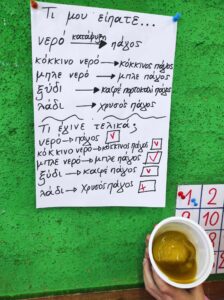 Τι μου είπατε...
νερό κατάψυξη πάγος
κόκκινο νερό → κόκκινος πάγος
μπλε νερό → μπλε πάγος
ξύδι → καφέ πορτοκαλί πάγος
λάδι → χρυσός πάγος
Τι έγινε τελικά;
νερό → πάγος
κόκκινο νερό → κόκκινος πάγος
μπλε νερό → μπλε πάγος
ξύδι → καφέ πάγος
λάδι → χρυσός πάγος
1 2
10